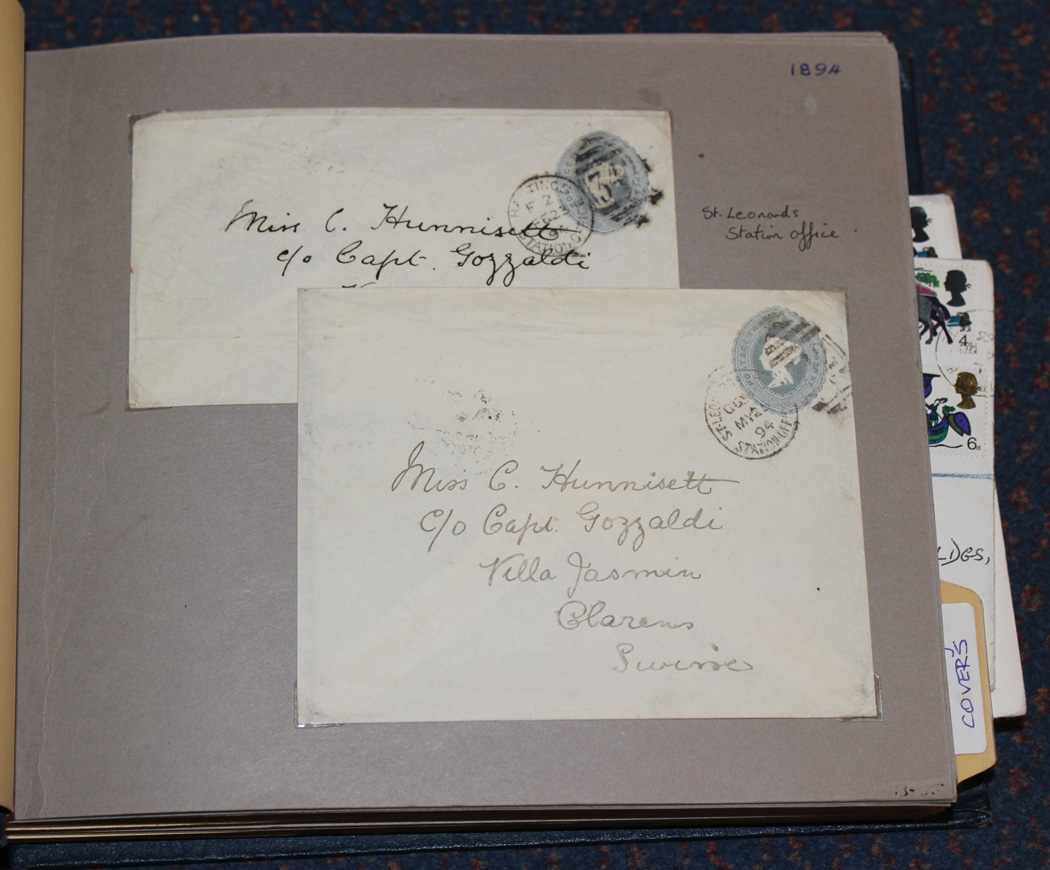 1894
HASTINGS
STATION OFFICE
34
Miss C. Hunnisett
c/o Capt. Gozzaldi
St. Leonards
Station office
ST. LEON
MY 2
94
STATION OFF
Miss C. Hunnisett
c/o Capt. Gozzaldi
Villa Jasmin
Clarens
Suisse
4
6D
LDGS,
COVER'S